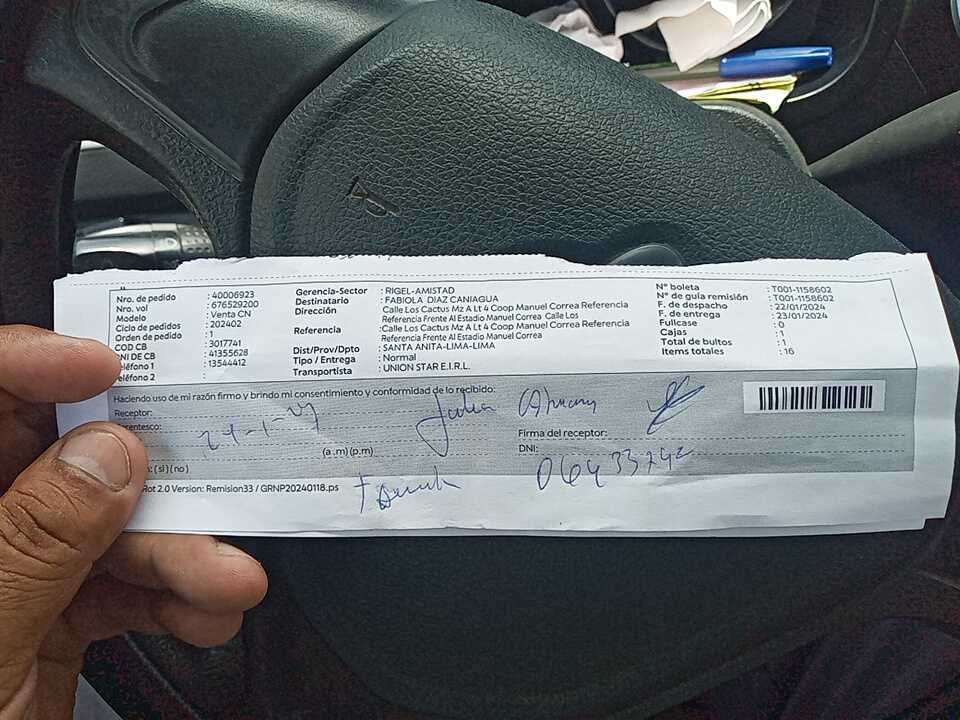 Nro. de pedido : 40006923
Nro. vol : 676529200
Modelo : Venta CN
Ciclo de pedidos : 202402
Orden de pedido : 1
COD CB : 3017741
DNI DE CB : 41355628
eléfono 1 : 13544412
eléfono 2 :
Gerencia-Sector : RIGEL-AMISTAD
Destinatario : FABIOLA DIAZ CANIAGUA
Dirección : Calle Los Cactus Mz A Lt 4 Coop Manuel Correa Referencia
Referencia Frente Al Estadio Manuel Correa Calle Los
Referencia : Calle Los Cactus Mz A Lt 4 Coop Manuel Correa Referencia
Referencia Frente Al Estadio Manuel Correa
Dist/Prov/Dpto : SANTA ANITA-LIMA-LIMA
Tipo / Entrega : Normal
Transportista : UNION STAR E.I.R.L.
N° boleta : T001-1158602
N° de guía remisión : T001-1158602
F. de despacho : 22/01/2024
F. de entrega : 23/01/2024
Fullcase : 0
Cajas : 1
Total de bultos : 1
Items totales : 16
Haciendo uso de mi razón firmo y brindo mi consentimiento y conformidad de lo recibido:
Receptor: Julia
rentesco:
(a .m) (p.m)
Firma del receptor:
DNI: 06433742
: (sí) (no)
Rot 2.0 Version: Remision33 / GRNP20240118.ps